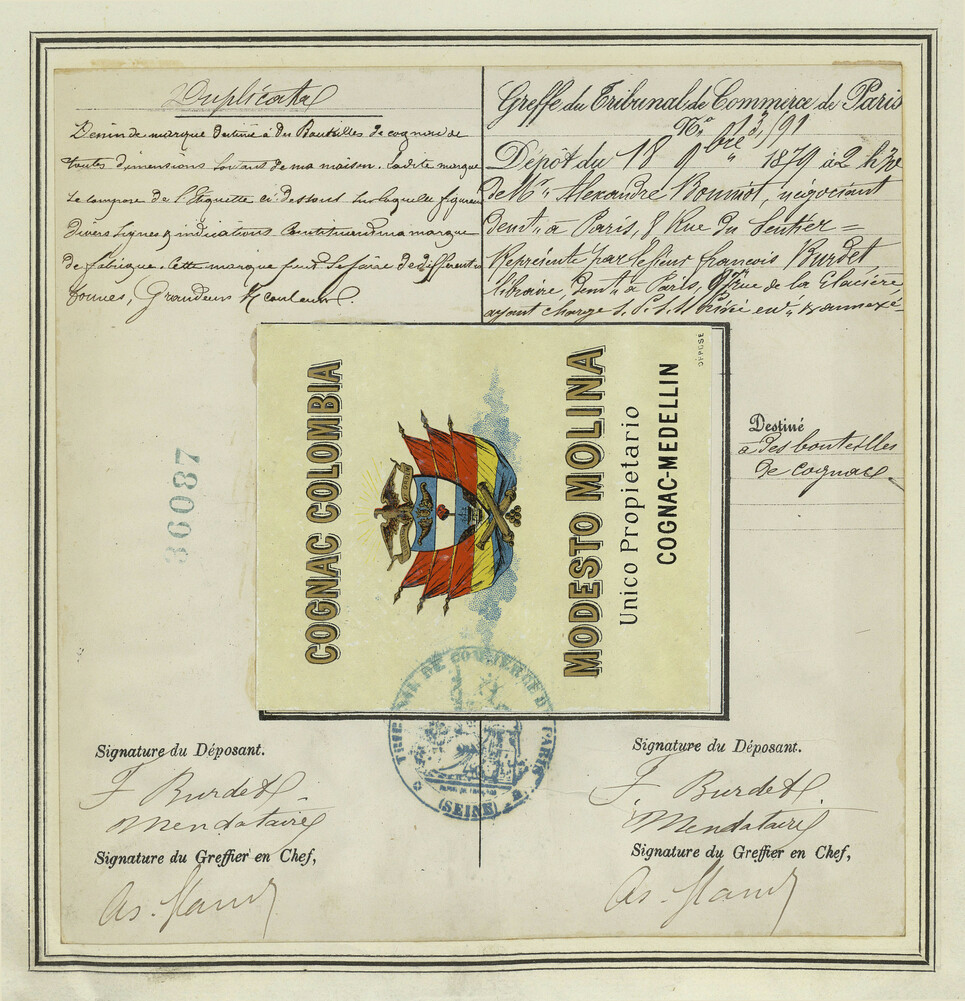 Duplicata
Dessin de marque destiné à des Bouteilles de cognac de
toutes dimensions sortant de ma maison. Ladite marque
se compose de l'Etiquette ci-dessous sur laquelle figurent
divers signes & indications constituant ma marque
de fabrique. Cette marque peut se faire de différentes
formes, Grandeurs & couleurs.
Greffe du Tribunal de Commerce de Paris
No.
Dépôt du 18 9bre 1879 à 2 h 30
de Mr. Alexandre négociant
demt. à Paris, 8 Rue du Sentier =
Représenté par le sieur françois Burdet
libraire demt. à Paris, rue de la Glacière
ayant charge
COGNAC COLOMBIA
MODESTO MOLINA
Unico Propietario
COGNAC-MEDELLIN
DÉPOSÉ
Destiné
à des bouteilles
de cognac
36087
TRIBUNAL DE COMMERCE DE PARIS
(SEINE)
Signature du Déposant.
F Burdet
Mendataire
Signature du Greffier en Chef,
Signature du Déposant.
F. Burdet
Mendataire
Signature du Greffier en Chef,